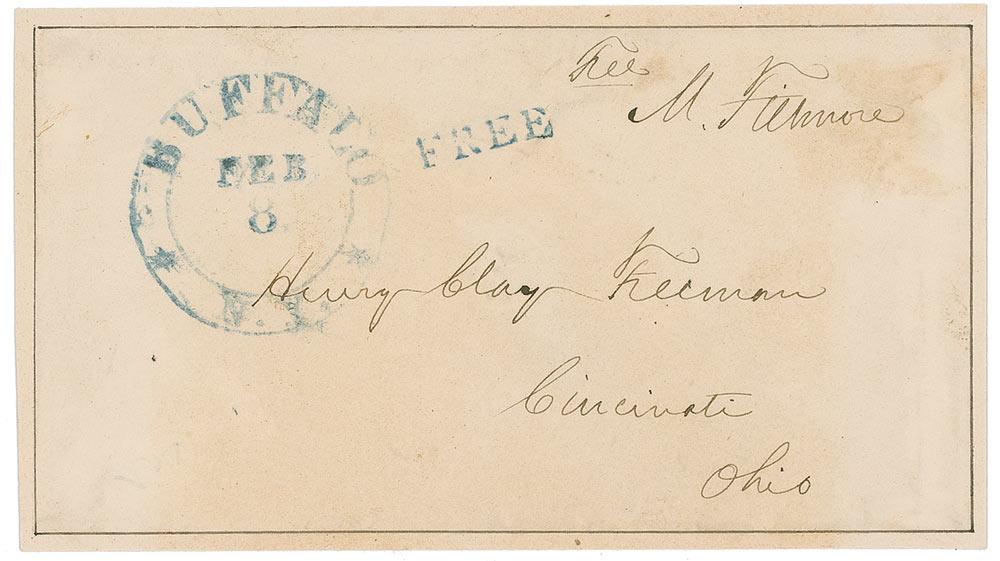 Free
M. Fillmore
BUFFALO
FEB
8
N.Y.
FREE
Henry Clay Freeman
Cincinati
Ohio